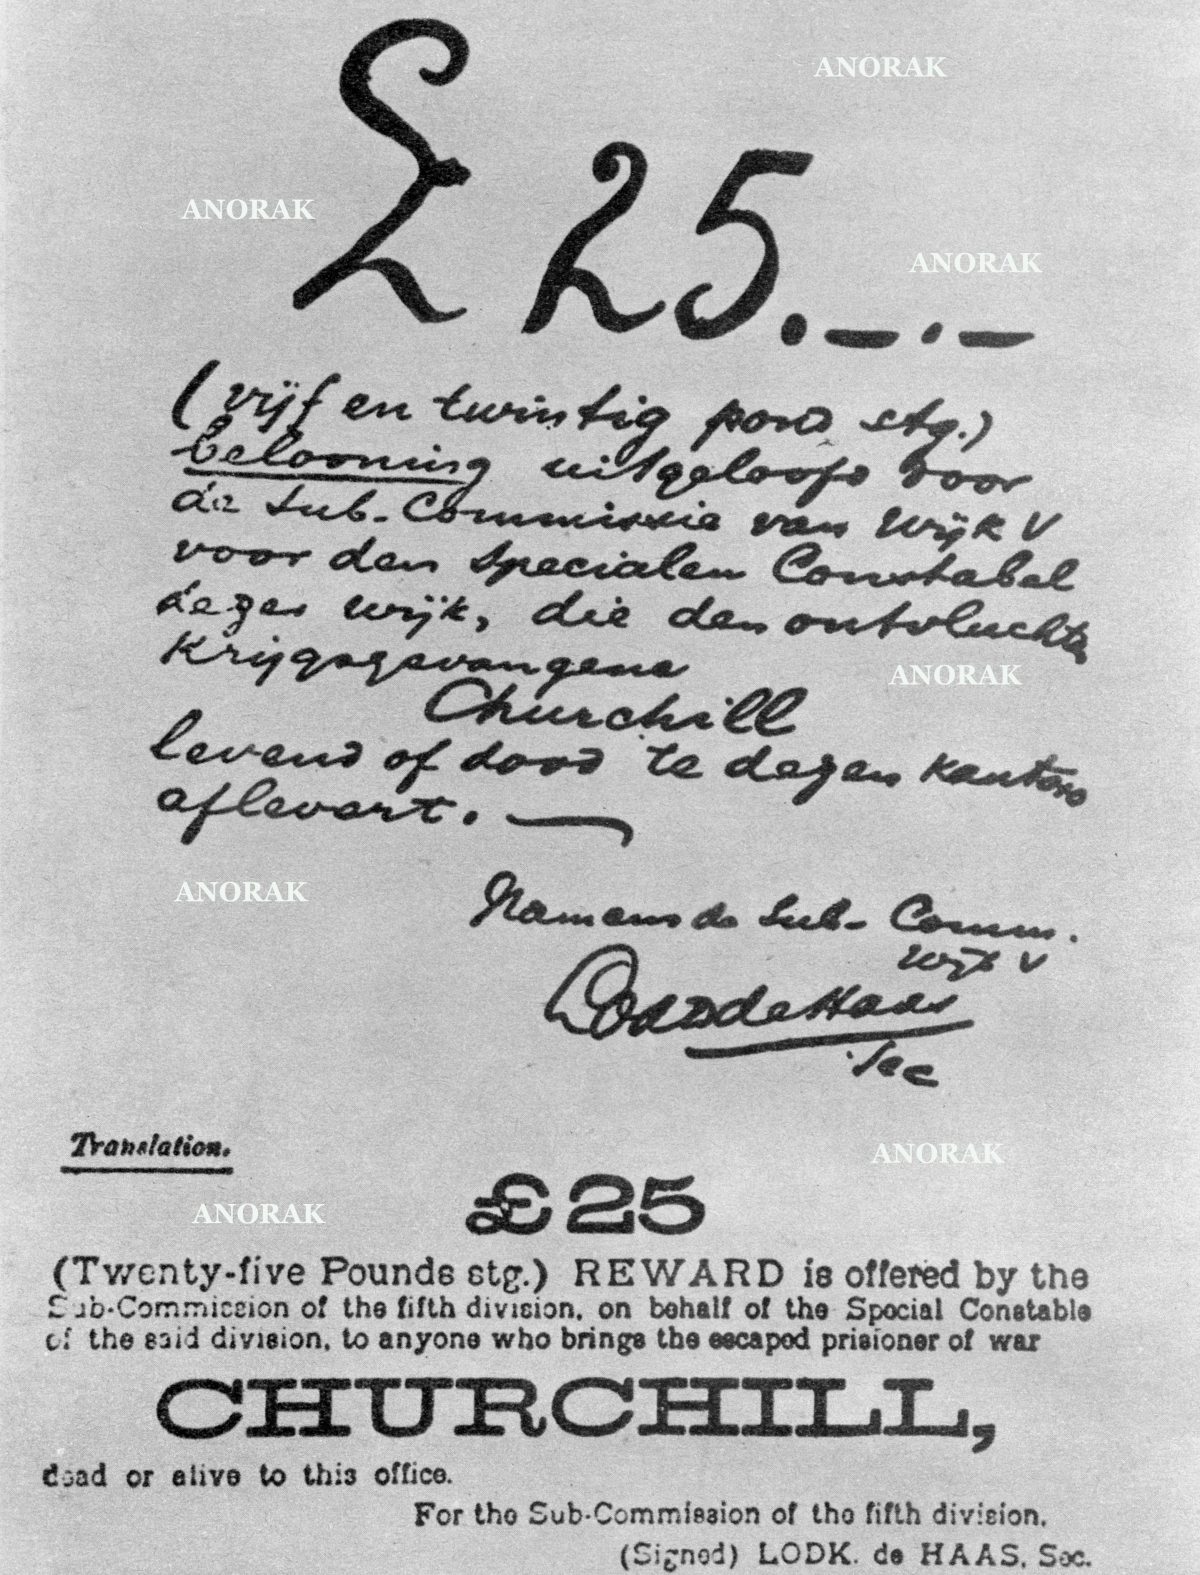 ANORAK
£ 25.–.–
ANORAK
ANORAK
(vijf en twintig pond stg.)
belooning uitgeloofd door
de Sub-Commissie van Wijk V
voor den Specialen Constabel
dezer wijk, die den ontvluchten
Krijgsgevangene
ANORAK
Churchill
levend of dood te dezen kantore
aflevert.
ANORAK
Namens de Sub-Comm.
Wijk V
Lodk de Haas
Sec
Translation.
ANORAK
£25
ANORAK
(Twenty-five Pounds stg.) REWARD is offered by the
Sub-Commission of the fifth division, on behalf of the Special Constable
of the said division, to anyone who brings the escaped prisioner of war
CHURCHILL,
dead or alive to this office.
For the Sub-Commission of the fifth division.
(Signed) LODK. de HAAS, Sec.